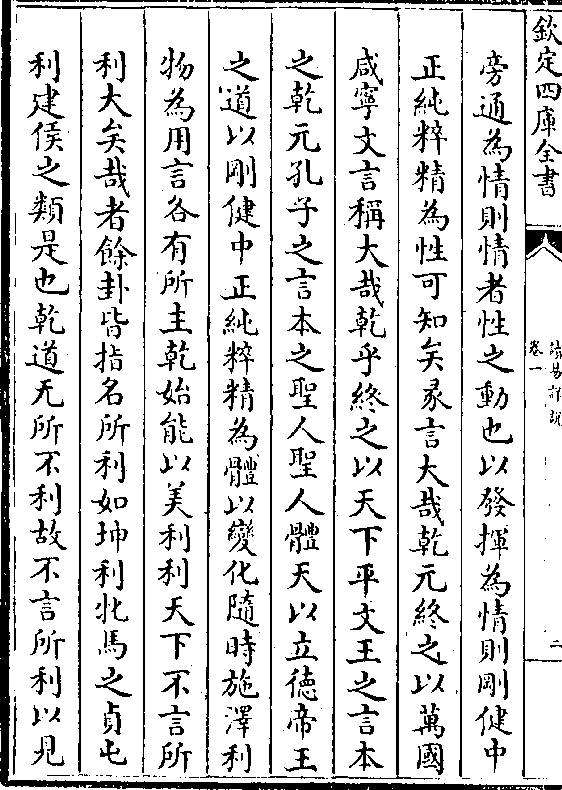 欽定四庫全書
讀易詳說
卷一
二
旁通為情則情者性之動也以發揮為情則剛健中
正純粹精為性可知矣彖言大哉乾元終之以萬國
咸寧文言稱大哉乾乎終之以天下平文王之言本
之乾元孔子之言本之聖人聖人體天以立德帝王
之道以剛健中正純粹精為體以變化隨時施澤利
物為用言各有所主乾始能以美利利天下不言所
利大矣哉者餘卦皆指名所利如坤利牝馬之貞屯
利建侯之類是也乾道无所不利故不言所利以見